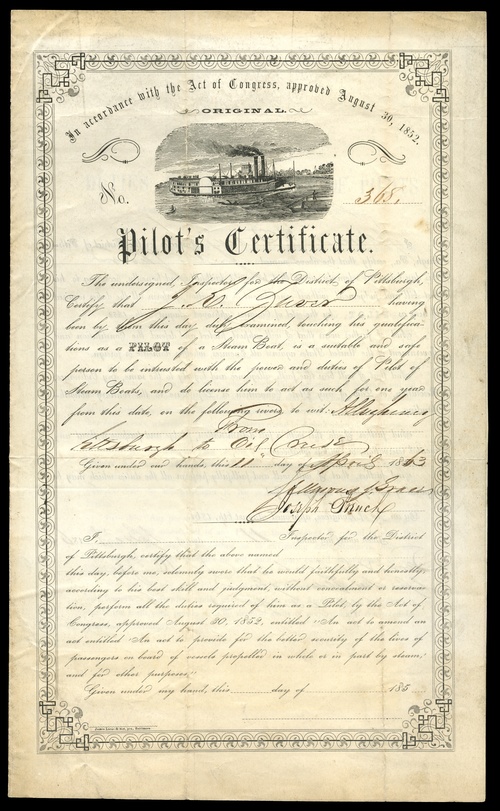 In accordance with the Act of Congress, approved August 30, 1852.
ORIGINAL.
No. 368.
Pilot's Certificate.
The undersigned, Inspectors for the District of Pittsburgh,
Certify that J. having
been by them this day duly examined, touching his qualifica-
tions as a PILOT of a Steam Boat, is a suitable and safe
person to be intrusted with the power and duties of Pilot of
Steam Boats, and do license him to act as such for one year
from this date, on the following rivers to wit: Allegheny
From
Pittsburgh to Oil Creek
Given under our hands, this 11" day of April 1863
Joseph
I, Inspector for the District
of Pittsburgh, certify that the above named
this day, before me, solemnly swore that he would faithfully and honestly,
according to his best skill and judgment, without concealment or reserva-
tion, perform all the duties required of him as a Pilot, by the Act of
Congress, approved August 30, 1852, entitled "An act to amend an
act entitled "An act to provide for the better security of the lives of
passengers on board of vessels propelled in whole or in part by steam;
and for other purposes."
Given under my hand, this day of 185